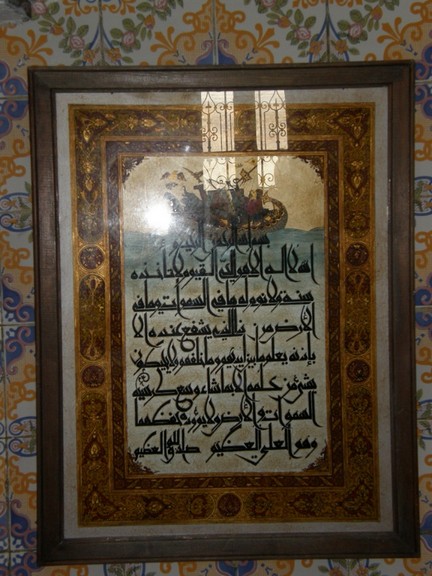 بسم الله الرحمن الرحيم
الله لا اله الا هو الحي القيوم لا تاخذه
سنة ولا نوم له ما في السموات وما في
الارض من ذا الذي يشفع عنده الا
بإذنه يعلم ما بين ايديهم وما خلفهم ولا يحيطون
بشئ من علمه الا بما شاء وسع كرسيه
السموات والارض ولا يؤده حفظهما
وهو العلي العظيم صدق الله العظيم